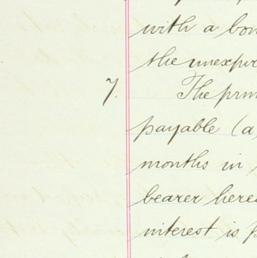 with a bon
the unexpir
7. The prin
payable (a
months in
bearer here
interest is p